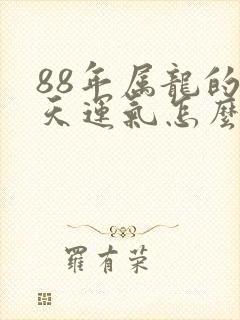 88年属龍的
天運氣怎麽
羅有荣